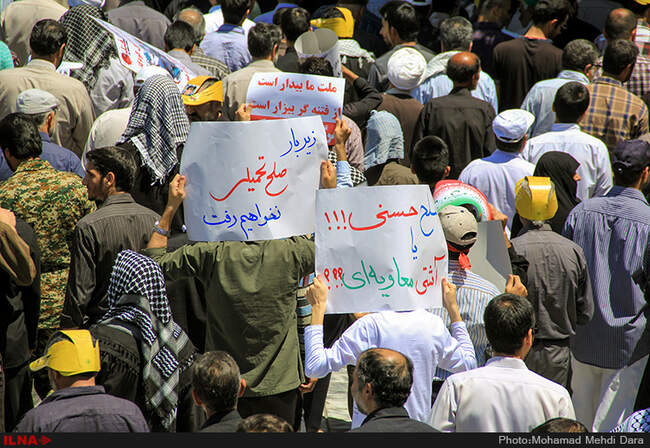 ملت ما بیدار است
از فتنه گر بیزار است
زیر بار
صلح تحمیلی
نخواهیم رفت
صلح حسنی!!!
یا
آشتی معاویه‌ای؟؟؟
ILNA
Photo:Mohamad Mehdi Dara